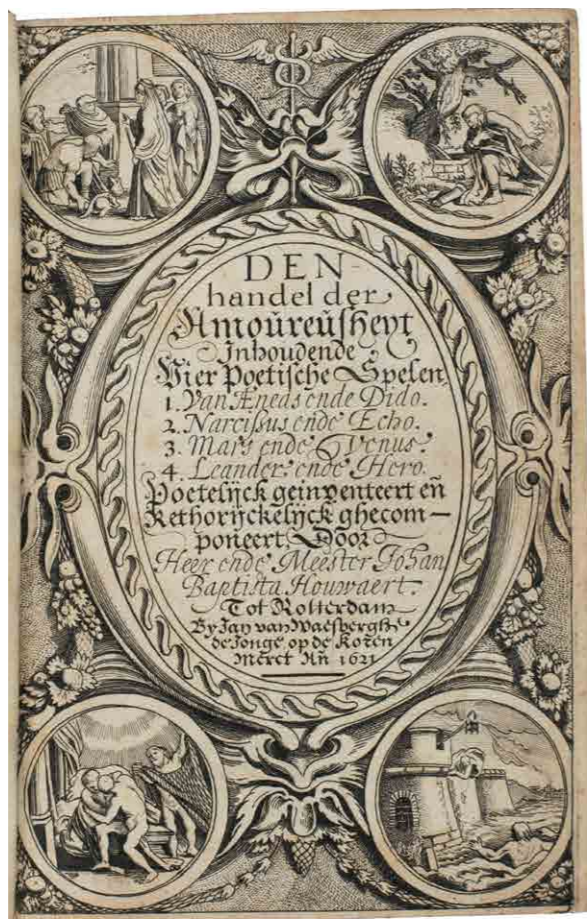 DEN
handel der
Amoureusheyt
Inhoudende
Vier Poetische Spelen,
1. Van Æneas ende Dido.
2. Narcissus ende Echo.
3. Mars ende Venus.
4. Leander ende Hero.
Poetelijck geinventeert eñ
Rethorijckelijck ghecom—
poneert Door
Heer ende Meester Johan
Baptista Houwaert.
Tot Rotterdam
By Jan van Waesberghe
de Jonge op de Koren
merct Añ 1621